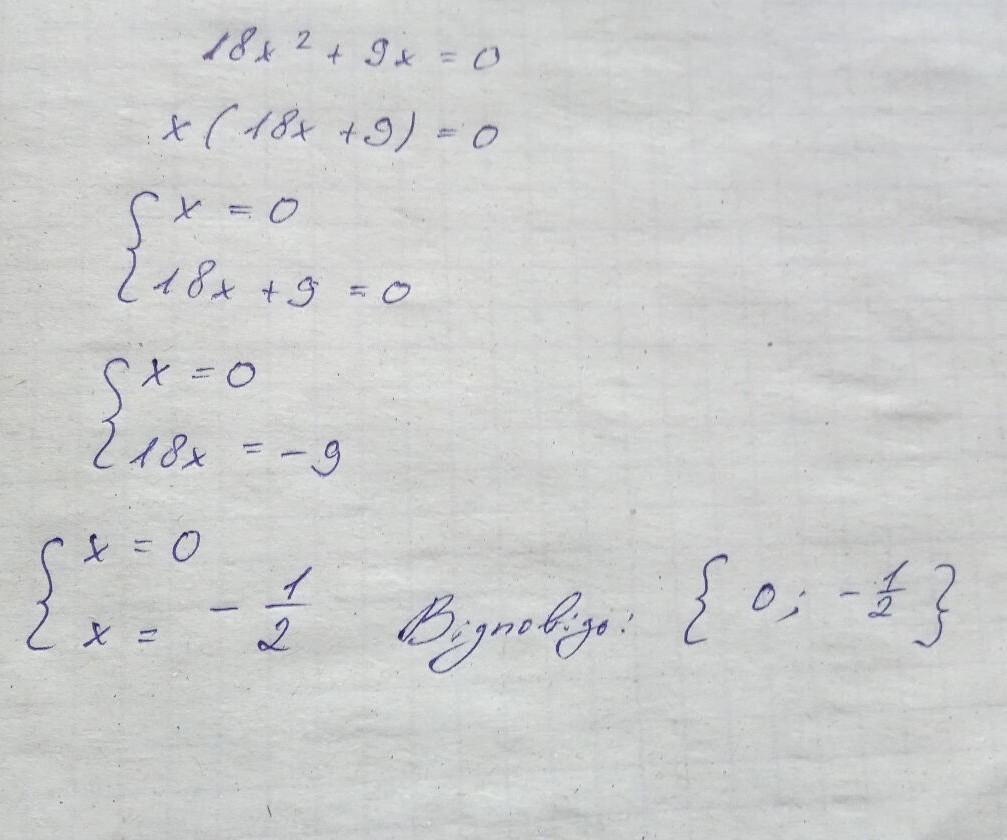 18x² + 9x = 0
x(18x + 9) = 0
{ x = 0
{ 18x + 9 = 0
{ x = 0
{ 18x = -9
{ x = 0
{ x = -1/2 Відповідь: { 0; -1/2 }